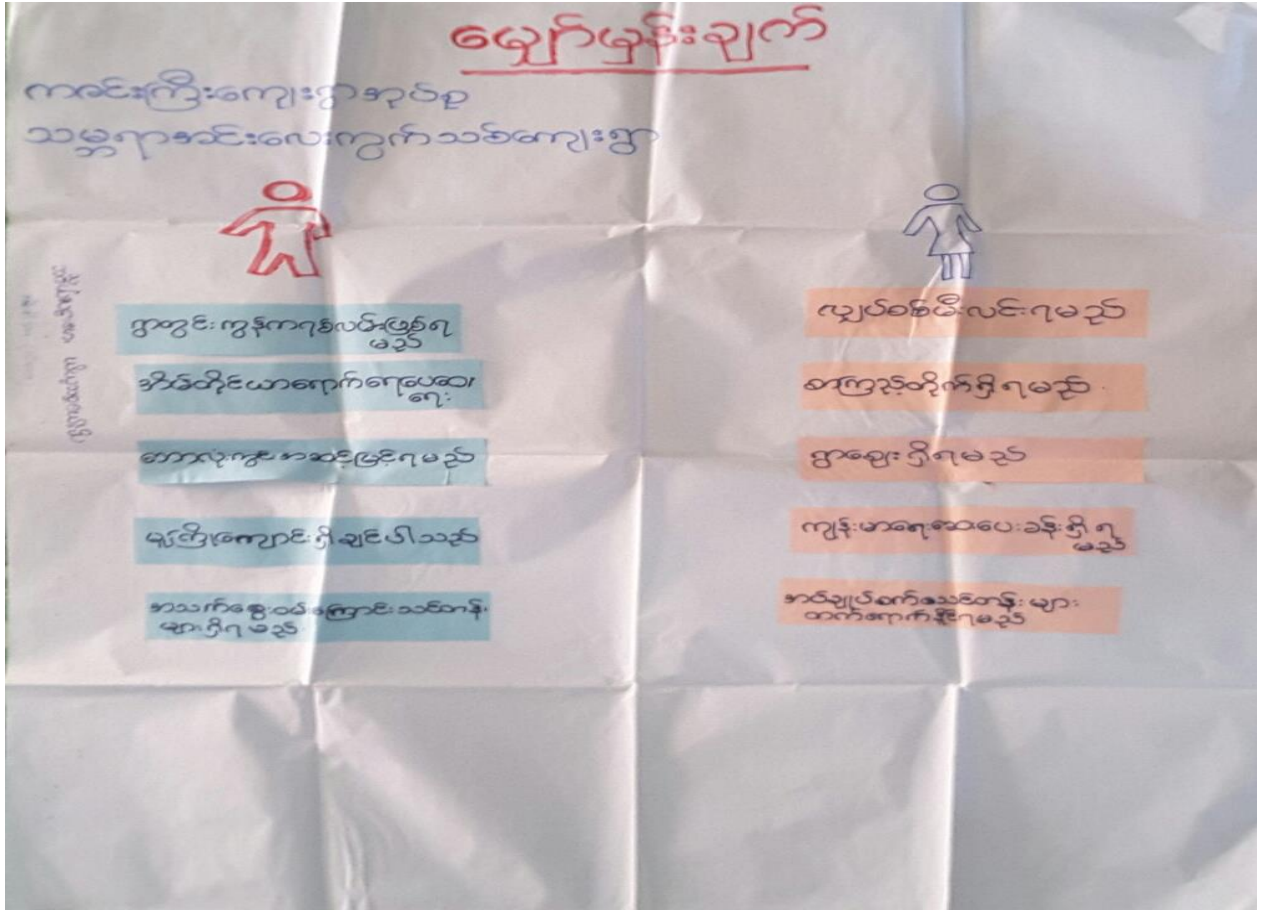 မျှော်မှန်းချက်
ကဇင်းကြီးကျေးရွာအုပ်စု
သမ္ဘရာအင်းလေးကွက်သစ်ကျေးရွာ
ရွာတွင်းကွန်ကရစ်လမ်းဖြစ်ရ
မည်
အိမ်တိုင်ယာရောက်ရေပေးဝေ
ရေး
ဘောလုံးကွင်းအဆင့်မြင့်ရမည်
မူကြိုကျောင်းရှိချင်ပါသည်
အသက်မွေးဝမ်းကြောင်းသင်တန်း
များရှိရမည်
လျှပ်စစ်မီးလင်းရမည်
စာကြည့်တိုက်ရှိရမည်
ရွာဈေးရှိရမည်
ကျန်းမာရေးဆေးပေးခန်းရှိရ
မည်
အပ်ချုပ်စက်သင်တန်းများ
တက်ရောက်နိုင်ရမည်